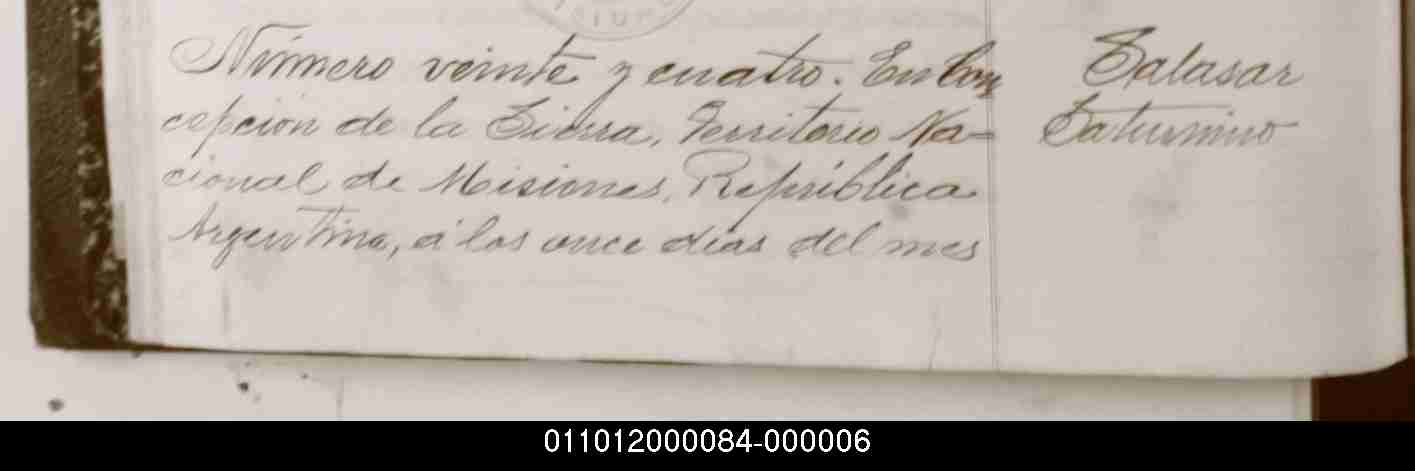 Número veinte y cuatro. En Con
cepción de la Sierra, Territorio Na=
cional de Misiones, República
Argentina, á los once días del mes
Salasar
Saturnino
011012000084-000006